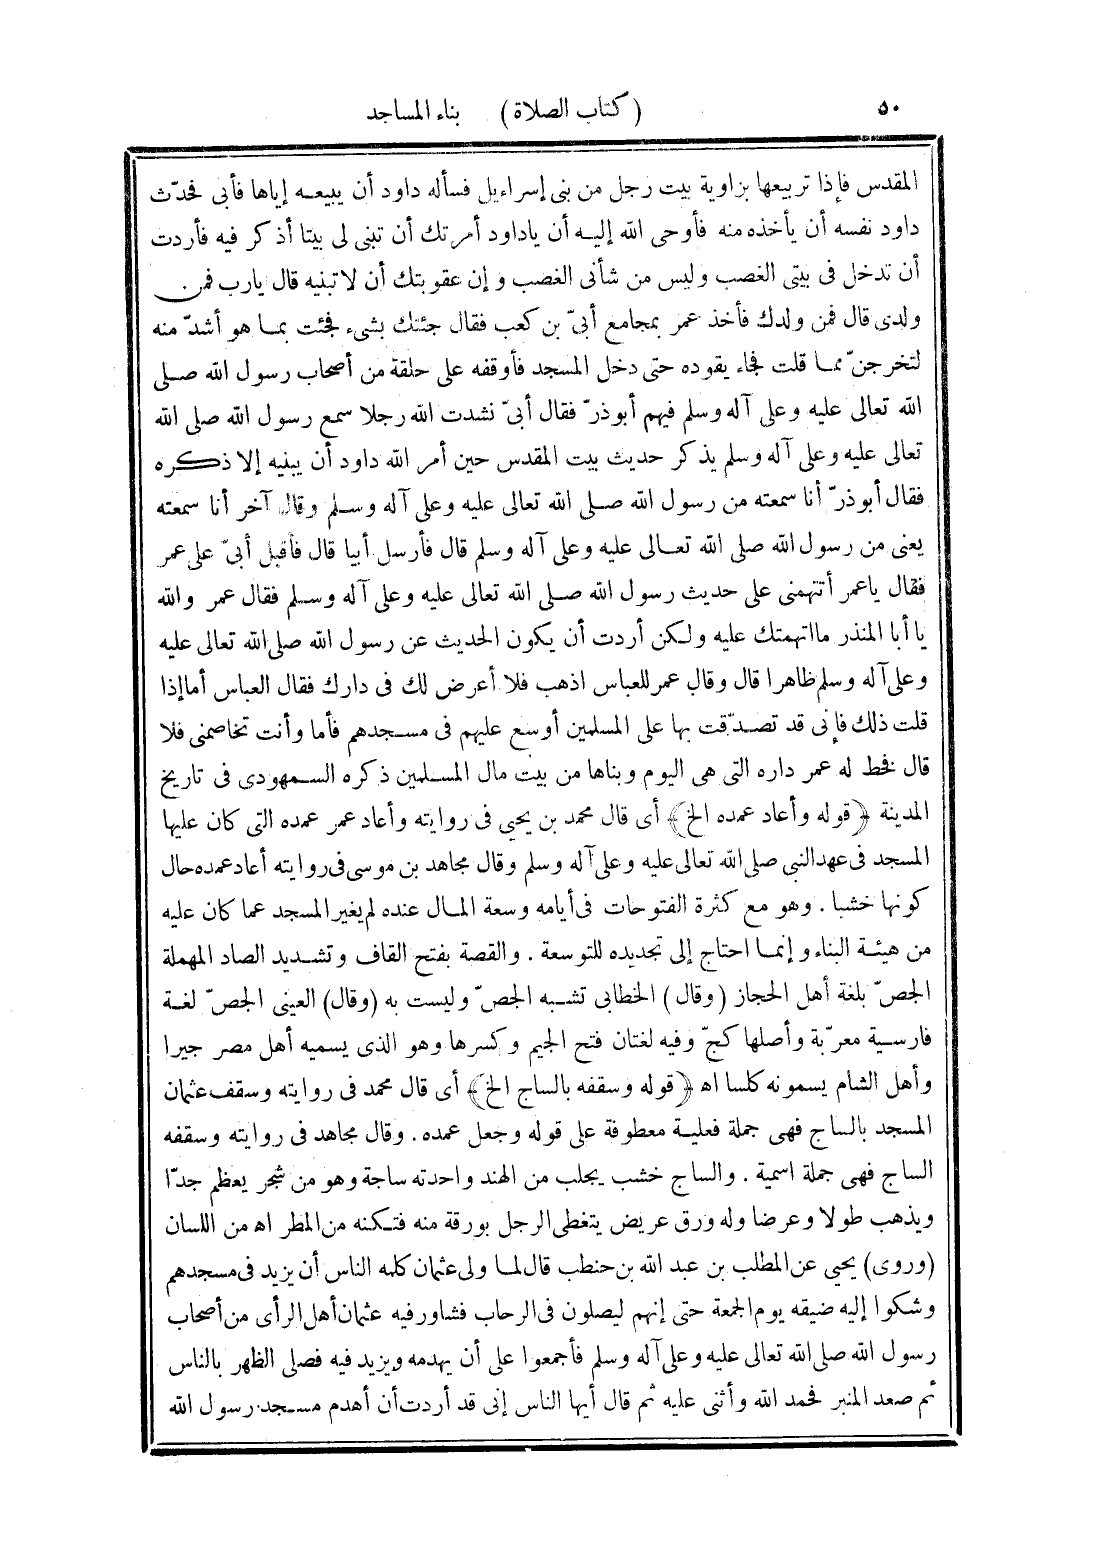 ٥٠ (كتاب الصلاة) بناء المساجد
المقدس فإذا تربيعها بزاوية بيت رجل من بنى إسراءيل فسأله داود أن يبيعه إياها فأبى فحدّث
داود نفسه أن يأخذه منه فأوحى الله إليه أن ياداود أمرتك أن تبنى لى بيتا أذكر فيه فأردت
أن تدخل فى بيتى الغصب وليس من شأنى الغصب وإن عقوبتك أن لاتبنيه قال يارب فمن
ولدى قال فمن ولدك فأخذ عمر بمجامع أبىّ بن كعب فقال جئتك بشىء فجئت بما هو أشدّ منه
لتخرجنّ مما قلت فجاء يقوده حتى دخل المسجد فأوقفه على حلقة من أصحاب رسول الله صلى
الله تعالى عليه وعلى آله وسلم فيهم أبوذرّ فقال أبىّ نشدت الله رجلا سمع رسول الله صلى الله
تعالى عليه وعلى آله وسلم يذكر حديث بيت المقدس حين أمر الله داود أن يبنيه إلا ذكره
فقال أبوذرّ أنا سمعته من رسول الله صلى الله تعالى عليه وعلى آله وسلم وقال آخر أنا سمعته
يعنى من رسول الله صلى الله تعالى عليه وعلى آله وسلم قال فأرسل أبيا قال فأقبل أبىّ على عمر
فقال ياعمر أتتهمنى على حديث رسول الله صلى الله تعالى عليه وعلى آله وسلم فقال عمر والله
يا أبا المنذر مااتهمتك عليه ولكن أردت أن يكون الحديث عن رسول الله صلى الله تعالى عليه
وعلى آله وسلم ظاهرا قال وقال عمر للعباس اذهب فلا أعرض لك فى دارك فقال العباس أماإذا
قلت ذلك فإنى قد تصدّقت بها على المسلمين أوسع عليهم فى مسجدهم فأما وأنت تخاصمنى فلا
قال فخط له عمر داره التى هى اليوم وبناها من بيت مال المسلمين ذكره السمهودى فى تاريخ
المدينة ﴿قوله وأعاد عمده الخ﴾ أى قال محمد بن يحيى فى روايته وأعاد عمر عمده التى كان عليها
المسجد فى عهد النبى صلى الله تعالى عليه وعلى آله وسلم وقال مجاهد بن موسى فى روايته أعاد عمده حال
كونها خشبا . وهو مع كثرة الفتوحات فى أيامه وسعة المال عنده لم يغير المسجد عما كان عليه
من هيئة البناء وإنما احتاج إلى تجديده للتوسعة . والقصة بفتح القاف وتشديد الصاد المهملة
الجصّ بلغة أهل الحجاز (وقال) الخطابى تشبه الجصّ وليست به (وقال) العينى الجصّ لغة
فارسية معرّبة وأصلها كجّ وفيه لغتان فتح الجيم وكسرها وهو الذى يسميه أهل مصر جيرا
وأهل الشام يسمونه كلسا اه ﴿قوله وسقفه بالساج الخ﴾ أى قال محمد فى روايته وسقف عثمان
المسجد بالساج فهى جملة فعلية معطوفة على قوله وجعل عمده . وقال مجاهد فى روايته وسقفه
الساج فهى جملة اسمية . والساج خشب يجلب من الهند واحدته ساجة وهو من شجر يعظم جدّا
ويذهب طولا وعرضا وله ورق عريض يتغطى الرجل بورقة منه فتكنه من المطر اه من اللسان
(وروى) يحيى عن المطلب بن عبد الله بن حنطب قال لما ولى عثمان كلمه الناس أن يزيد فى مسجدهم
وشكوا إليه ضيقه يوم الجمعة حتى إنهم ليصلون فى الرحاب فشاور فيه عثمان أهل الرأى من أصحاب
رسول الله صلى الله تعالى عليه وعلى آله وسلم فأجمعوا على أن يهدمه ويزيد فيه فصلى الظهر بالناس
ثم صعد المنبر فحمد الله وأثنى عليه ثم قال أيها الناس إنى قد أردت أن أهدم مسجد رسول الله